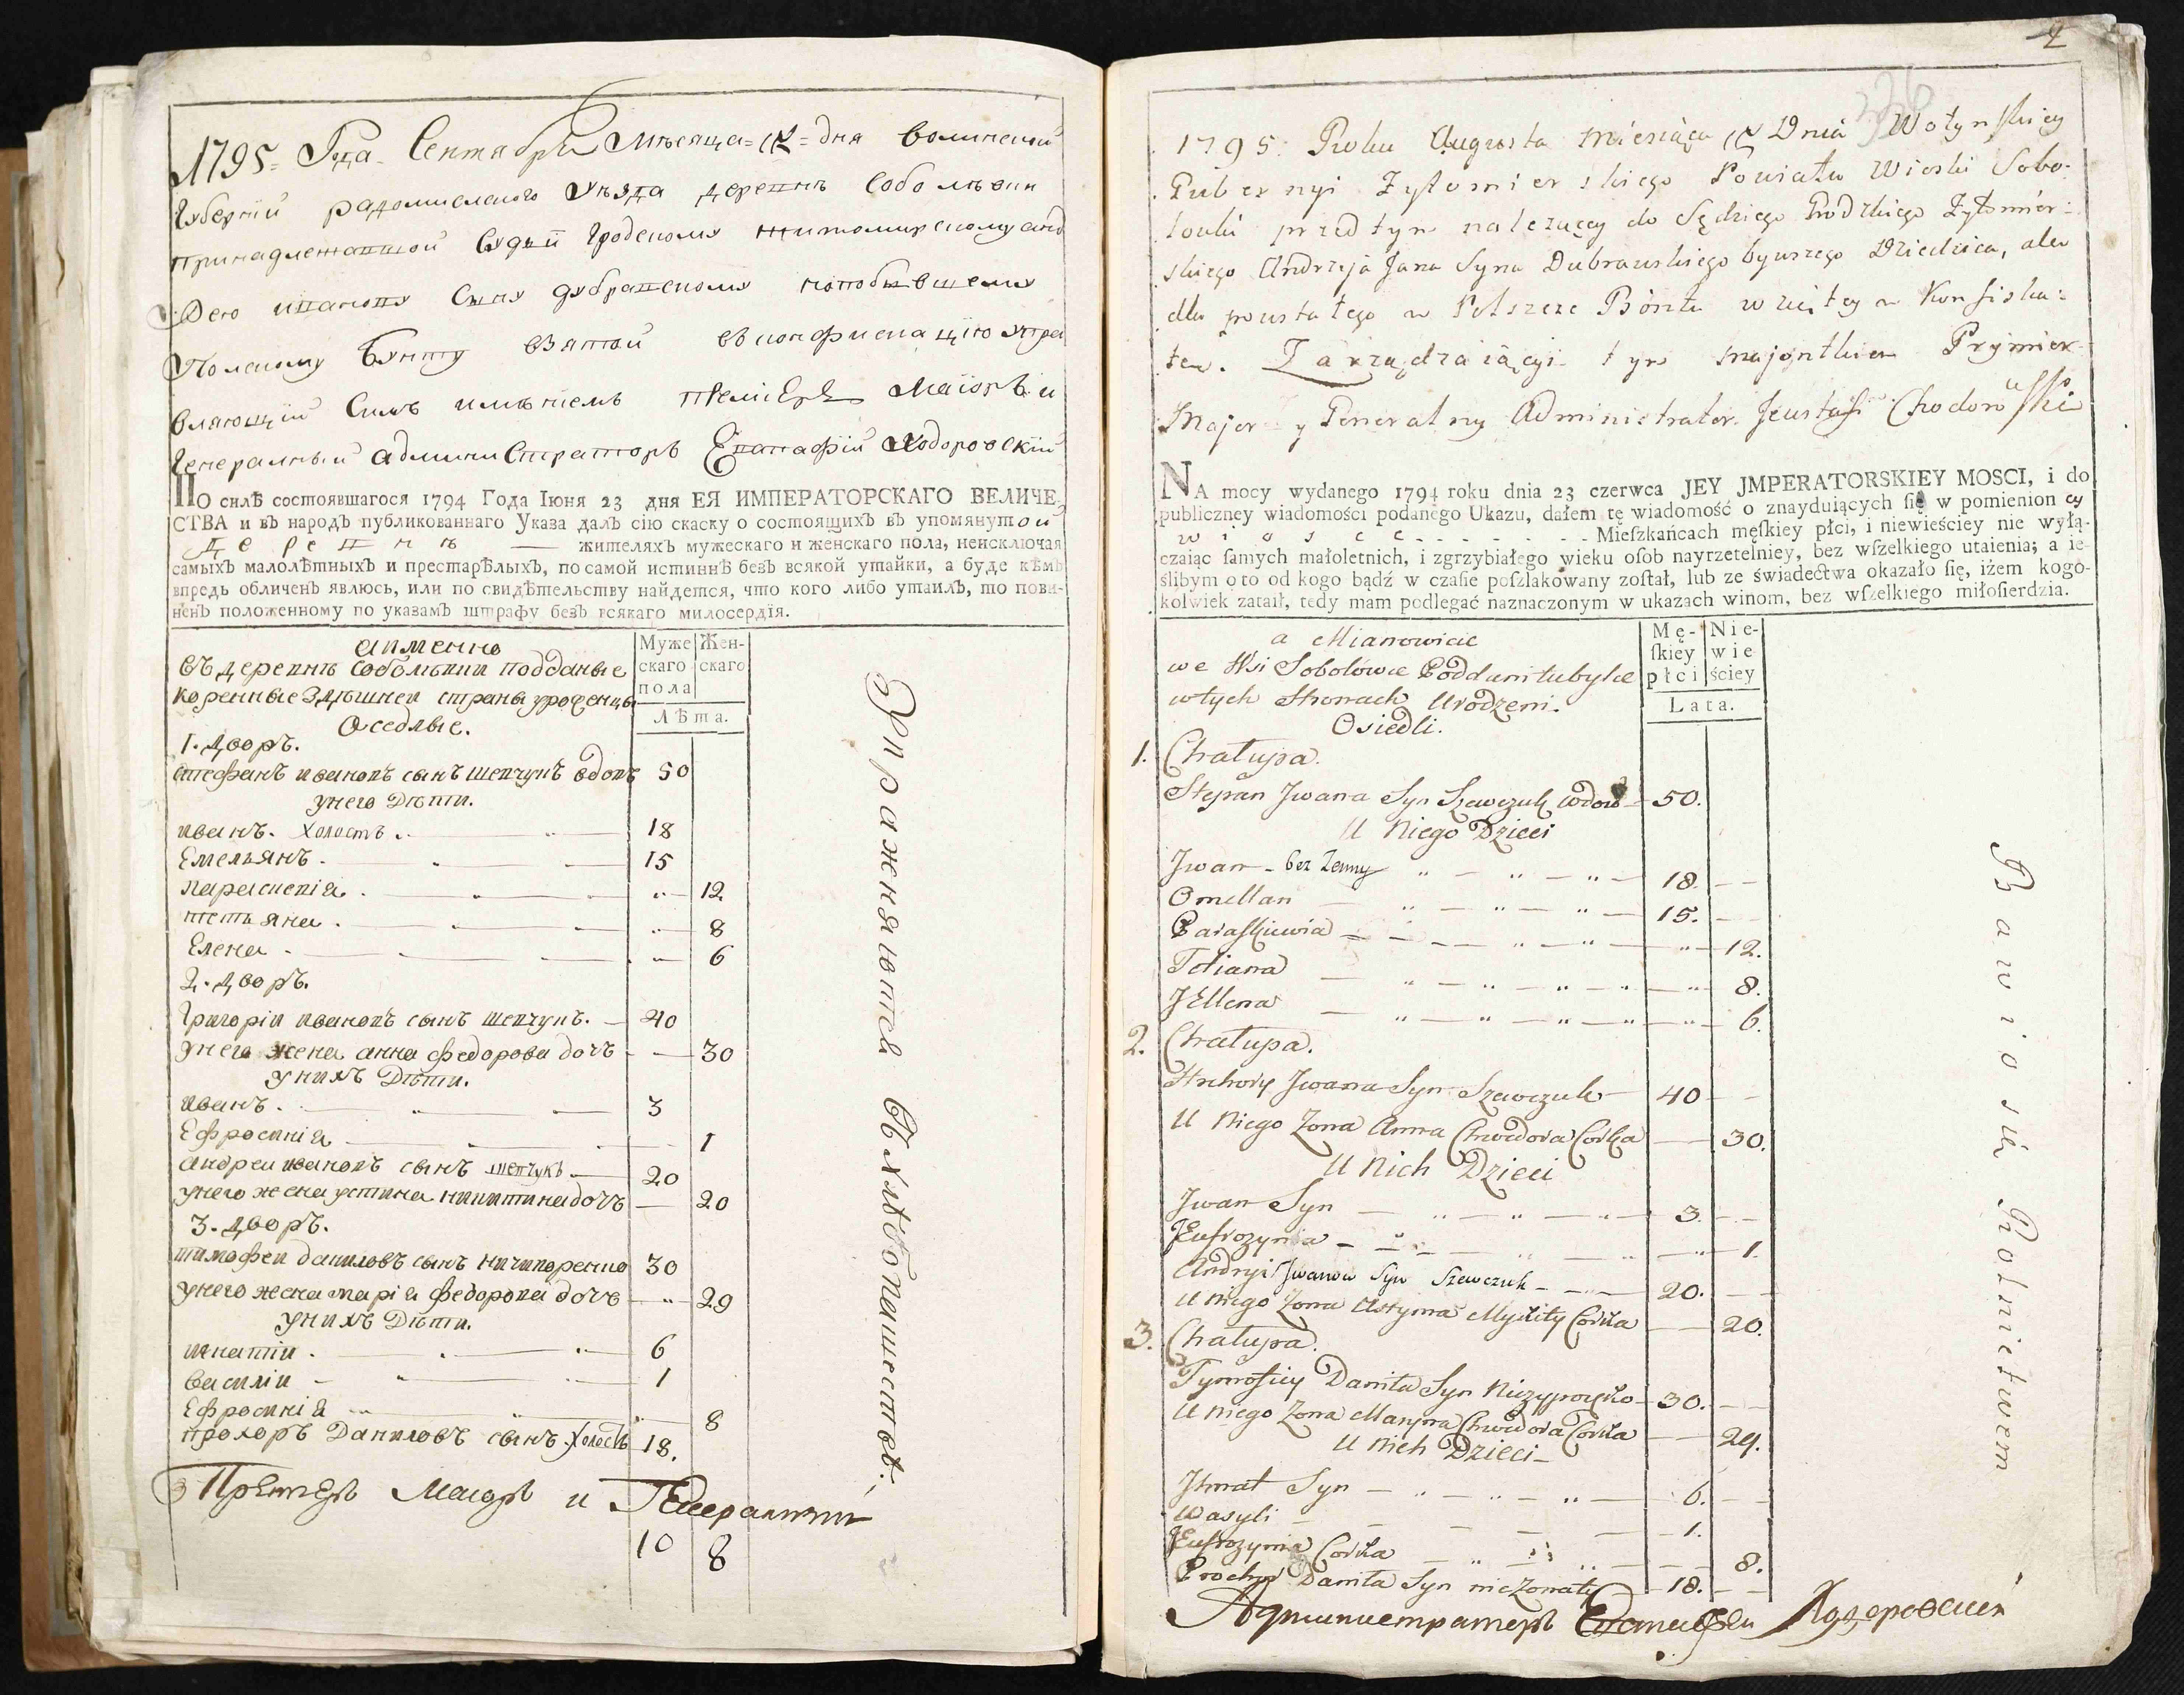 1795 = Года Сентября Мѣсяца = = дня волинской
Губерніи радомисльского Уѣзда деревнѣ Соболѣвки
принадлежавшой Судьи Гродскому житомирскому анд
рею иванову Сыну дубравскому
Полскому бунту взятой въ конфискацію упра
вляющій Симъ имѣніемъ премiеръ Маіоръ и
Генералный администраторъ Евстафій Ходоровскій
ПО силѣ состоявшагося 1794 Года Іюня 23 дня ЕЯ ИМПЕРАТОРСКАГО ВЕЛИЧЕ-
СТВА и въ народъ публикованнаго Указа далъ сію скаску о состоящихъ въ упомянутой
деревнѣ — жителяхъ мужескаго и женскаго пола, неисключая
самыхъ малолѣтныхъ и престарѣлыхъ, по самой истиннѣ безъ всякой утайки, а буде кѣмъ
впредь обличенъ явлюсь, или по свидѣтельству найдется, что кого либо утаилъ, то пови-
ненъ положенному по указамъ штрафу безъ всякаго милосердія.
аименно
въ деревнѣ Соболѣвки подданые
коренные здѣшней страны уроженцы
Оседлые.
Муже Жен-
скаго скаго
пола
Лѣта.
1. дворъ.
стефанъ ивановъ сынъ шевчукъ вдовъ 50
унего Дѣти.
иванъ. холостъ 18
Емельянъ. 15
параскевія. 12
тетяна. 8
Елена. 6
2. дворъ.
Григоріи ивановъ сынъ шевчукъ. 40
унего жена анна федорова дочъ 30
унихъ Дѣти.
иванъ. 3
Ефросинія 1
андреи ивановъ сынъ шевчукъ 20
унего жена устина никитина дочъ 20
3. дворъ.
тимофеи даниловъ сынъ ничипоренко 30
унего жена марія федорова дочъ 29
унихъ Дѣти.
игнатіи. 6
василіи 1
Ефросинія 8
прохоръ Даниловъ сынъ холостъ 18.
Премьеръ Маіоръ и Генералный
10 8
Упражняются въ хлѣбопашествѣ.
2
336
1795. Roku Augusta Miesiąca Dnia Wołynskiey
Gubernyi Zytomierskiego Powiatu Wioski Sobo-
lowki przed tym nalezącey do Sędziego Grodzkiego Zytomier-
skiego Andrzeja Jana Syna Dubrawskiego bywszego Dziedzica, ale
dla powstałego w Polszcze Bóntu wziętey w Konfiska-
te. Zarządzaiącyi tym majontkiem Prymier
Major y Generalny Administrator Jeustafi Chodorowski
NA mocy wydanego 1794 roku dnia 23 czerwca JEY JMPERATORSKIEY MOSCI, i do
publiczney wiadomości podanego Ukazu, dałem tę wiadomość o znayduiących ſię w pomienioney
wiosce - - - - - - - Mieſzkańcach męſkiey płci, i niewieściey nie wyłą-
czaiąc ſamych małoletnich, i zgrzybiałego wieku oſob nayrzetelniey, bez wſzelkiego utaienia; a ie-
ślibym oto od kogo bądź w czaſie poſzlakowany zoſtał, lub ze świadectwa okazało ſię, iżem kogo-
kolwiek zataił, tedy mam podlegać naznaczonym w ukazach winom, bez wſzelkiego miłoſierdzia.
a Mianowicie
we Wsi Sobolówce Poddani tubylce
wtych Stronach Urodzeni.
Osiedli.
Mę- Nie-
ſkiey wie
płci ściey
Lata.
1. Chałupa.
Stepan Jwana Syn Szewczuk wdow 50.
U Niego Dzieci
Jwan - bez Zenny 18.
Omellan 15.
Paraſkiewia 12.
Tetiana 8.
JEllena 6.
2. Chałupa.
Hrehory Jwana Syn Szewczuk 40
U Niego Zona Anna Chwedora Corka 30.
U Nich Dzieci
Jwan Syn 3.
JEufrozynia 1.
Andryi Jwanow Syn Szewczuk 20.
U niego Zona Ustyma Mykity Corka 20.
3. Chałupa.
Tymofiey Daniła Syn Niczyporenko 30.
U niego Zona Maryna Chwedora Corka 29.
U Nich Dzieci
Jhnat Syn 6.
Wasyli 1.
JEufrozynia Corka 8.
Prochor Daniła Syn nie Zonaty 18.
Администраторъ Евстафей Ходоровскій
Bawio się Rolnictwem